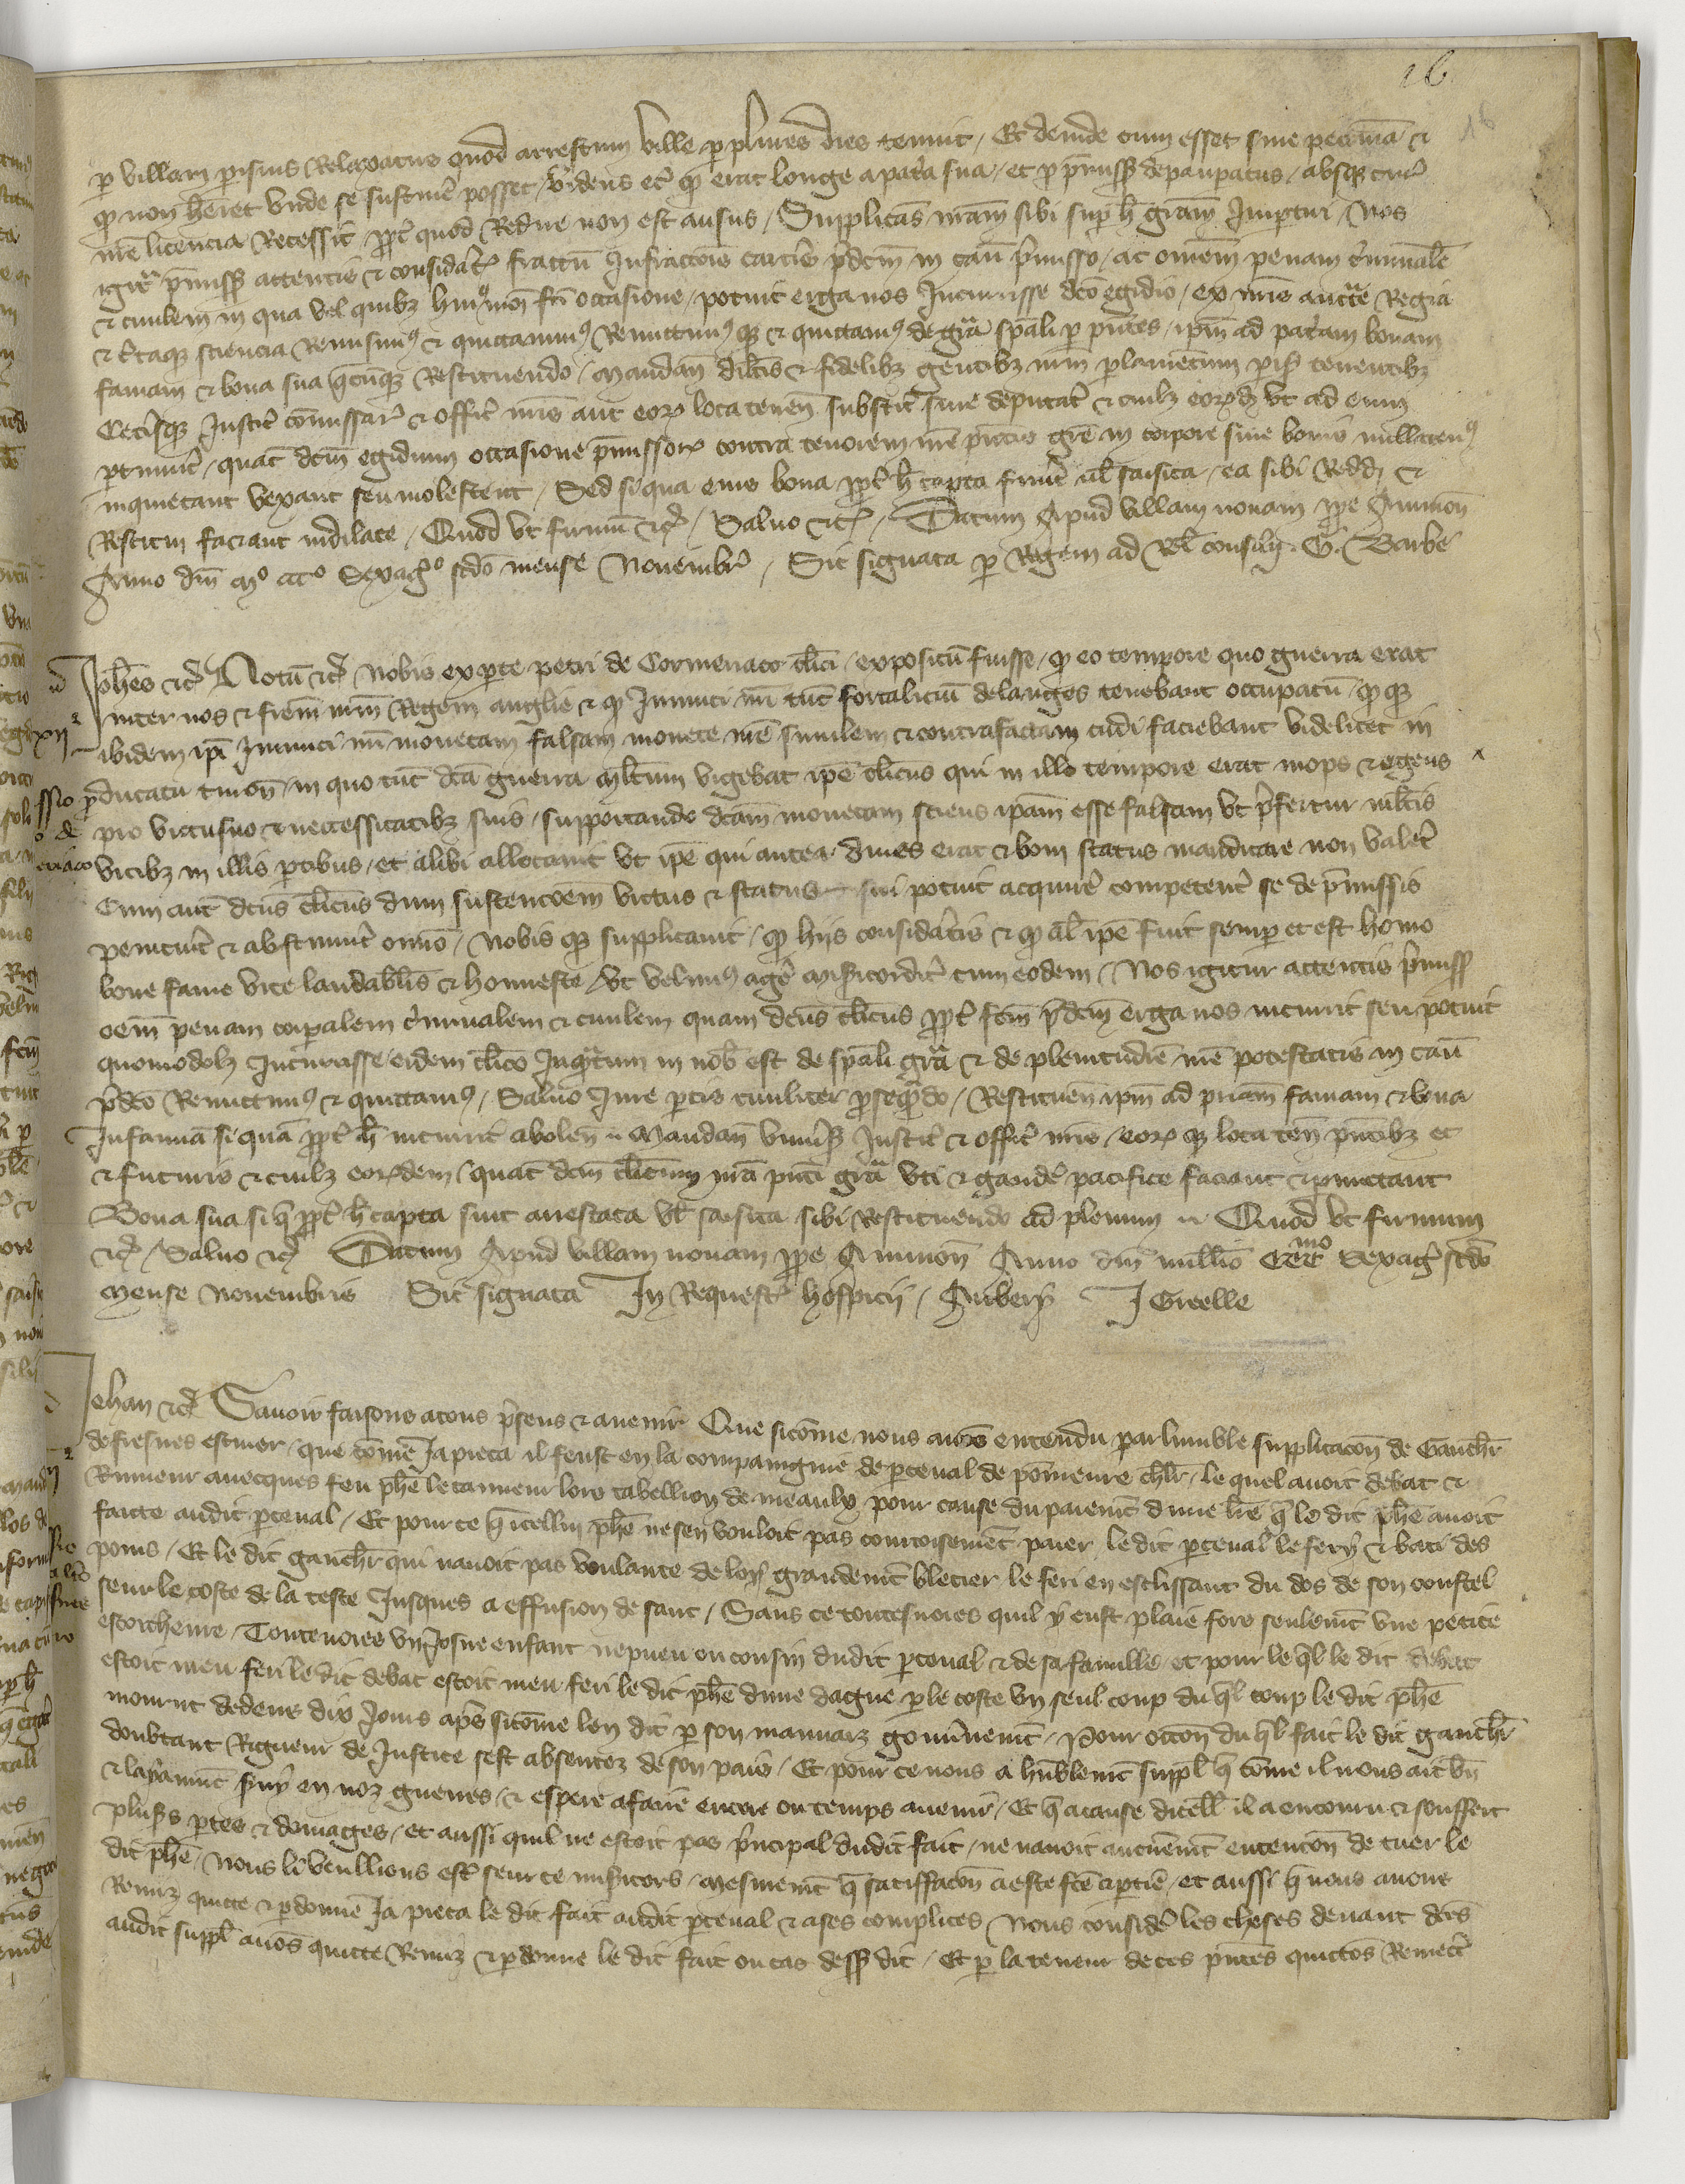 16
16
ꝑ villam ꝑisius Relaxatus quod arrestum ville ꝑ plures dies tenuit / Et deinde cum esset sine pecunia &
ꝙ non heret vnde se sustinẽ posset / videns ec̃ ꝙ erat longe a pat̾a sua / et ꝑ p̃miss̃ depaupatus / absqꝫ
nr̃e licencia Recessit / ꝓpt̾ quod Redire non est ausus / Supplicãs nr̃am sibi sup h̃ gr̃am Impertiri / Nos
igit̾ p̃miss̃ attentis & considãt̾ fractũ Infractois carc̾is p̃dcm̃ in cãu p̃misso / ac om̃em penam c̾iminalẽ
& ciuilem in qua vel quibꝫ huiꝰmõi fci occasione / potuit erga nos Incurrisse dco egidio / ex nr̃is auctt̃e Regia
& c̾taqꝫ sciencia Remisimꝰ & quictauimꝰ Remittimꝰ qꝫ & quictamꝰ de gr̃a sp̃ali ꝑ p̃ntes / ip̃m ad pat̾am bonam
famam & bona sua q̃cũqꝫ Restituendo / Mandan̄ dilc̃is & fidelibꝫ gentibꝫ nr̃m parlamentum ꝑis̃ tenentibꝫ
Cet̾isqꝫ Justic̾ com̃issar̾ & offic̾ nr̃is aut eoꝝ loca tenen̄ substit̾ siue deputat̾ & cuilꝫ eoꝝdẽ vt ad eum
ꝑtinuit̾ / quat̃ dcm̃ egidium occasione p̃missoꝝ contra tenorem nr̃e p̃ntis gr̃e in corpore siue bonis nullatenꝰ
inquietant vexant seu molestent / Sed si qua eius bona ꝓpt̾ h̃ capta fuerit al̃ saisita / ea sibi Reddi &
Restitui faciant indilate / Quod vt firmũ &c̾ / Saluo &c̾ / Datum Apud villam nouam ꝓpe Auinion̄
Anno dm̃ mᵒ cccᵒ Sexagᵒ scdo mense Nouembr̾ / Sic signata ꝑ Regem ad Rel̃ consilij . G . Barbe
Joh̃es &c̾ Notũ &c̾ Nobis ex ꝑte petri de Cormeriaco cl̃ici / expositũ fuisse / ꝙ eo tempore quo guerra erat
inter nos & fr̃em nr̃m Regem anglie & ꝙ Inimici nr̃i tũc fortaliciũ de langes tenebant occupatũ / ꝙ qꝫ
ibidem ip̃i Inimici nr̃i monetam falsam monete nr̃e similem & contrafactam cudi faciebant videlicet in
ducatu turon̄ / in quo tũc dc̃a guerra m̃ltum vigebat ip̃e cl̃icus qui in illo tempore erat inops & egens
pro victu suo & neccessitatibꝫ suis / supportando dc̃am monetam sciens ip̃am esse falsam vt p̃fertur m̃ltis
vicibꝫ in illis ꝑtibus / et alibi allocauit vt ip̃e qui antea diues erat & boni status mandicare non valet̾
Cum aut̃ dcũs cl̃icus dum sustentc̃oem victus & status sui potuit acquirẽ competent̾ se de p̃missis
penituit̾ & abstinuit̾ om̃o / Nobis qꝫ supplicauit / ꝙ hijs considãt̾is & ꝙ al̃ ip̃e fuit semꝑ et est homo
bone fame vite laudabl̃is & honneste / vt velimꝰ agẽ miꝫicordit̾ cum eodem / Nos igitur attentis p̃miss̃
oẽm penam corꝑalem c̾iminalem & ciuilem quam dcũs cl̃icus ꝓpt̾ fcm̃ p̃dcm̃ erga nos incurrit seu potuit
quomodolꝫ Incurrisse / eidem cl̃ico Inquãtum in nob̃ est de sp̃ali gr̃a & de plenitudiẽ nr̃e potestatis in cãu
p̃dco Remittimꝰ & quictamꝰ / Saluo Iure ꝑtis ciuiliter ꝓseq̃ndo / Restituen̄ ip̃m ad p̃nam famam & bona
Infamiã si quã ꝓpt̾ h̃ incurrit̾ abolen̄ Mandan̄ vniu̾s̃ Justic̾ & offic̾ nr̃is / eoꝝ qꝫ loca ten̄ p̃ntibꝫ et
& futuris & cuilꝫ eoꝝdem / quat̃ dcm̃ cl̃icum nr̃a p̃nti gr̃a vti & gaudẽ pacifice faciant & ꝑmittant
Bona sua si q̃ ꝓpt̾ h̃ capta sint arrestata vl̃ saisita sibi Restituendo ad plenum Quod vt firmum
&c̾ / Saluo &c̾ Datum Apud villam nouam ꝓpe Auinion̄ Anno dm̃ milli̾o CCCᵐᵒ Sexag̾ scdo
Mense Nouembris Sic signata In Request̾ hospicij / J Greelle
Jehan &c̾ Sauoir faisons a tous p̃sens & auenir Que sicõme nous auõs entendu par lumble supplicacõn de Gauch̃r
de fresnes escuier / que cõme Ja pieca il feust en la compaingnie de ꝑceual de põmeure ch̃lr / le quel auoit debat &
Rumeur auecques feu ph̃e le tanneur lors tabellion de meaulx pour cause du paiemt̃ dune lr̃e q̃ le dit ph̃e auoit
faicte audit ꝑceual / Et pour ce q̃ icellui ph̃e ne sen vouloit pas courtoisemẽt paier / le dit ꝑceual le fery & bati des
poins / Et le dit gauch̃r qui nauoit pas voulante de loy grandemt̃ blecier / le feri en esclissant du dos de son coustel
seur le coste de la teste Jusques a effusion de sanc / Sans ce toutesuoies quil y eust plaie fors seulemt̃ vne petite
escorcheure / Toutesuoies vn Josne enfant nepueu ou cousin dudit ꝑceual & de sa famille / et pour le q̃l le dit debat
estoit meu feri le dit debat estoit meu feri le dit ph̃e dune dague ꝑ le coste vn seul coup du q̃l coup le dit ph̃e
mourut dedens dix Jours ap̃s sicõme len dit ꝑ son mauuaiz gouu̾nemt̃ / Pour occõn du q̃l fait le dit gauch̃r
doubtant Rigueur de Justice sest absentez de son pais / Et pour ce nous a hũblemt̃ suppl̃ q̃ cõme il nous ait bñ
& layaumt̃ s̾uy en noz guerres / & espere a faire encore ou temps auenir / Et q̃ a cause dicell̃ il a encouru & souffert
plus̃s ꝑtes & domages / et aussi quil ne estoit pas p̃ncipal dudit fait / ne nauoit aucunemt̃ entencõn de tuer le
dit ph̃e / Nous li veullions est̾ seur ce miꝫicors / Mesmemt̃ q̃ satiffacõn a este fc̃e a ꝑtie / et aussi q̃ nous auons
Remiz quitte & ꝑdonnẽ Ja pieca le dit fait audit ꝑceual & a ses complices / Nous considẽ les choses deuant dc̃es
audit suppl̃ auõs quitte Remiz & ꝑdonne le dit fait ou cas dess̃ dit / Et ꝑ la teneur de ces p̃ntes quictõs Remect̾